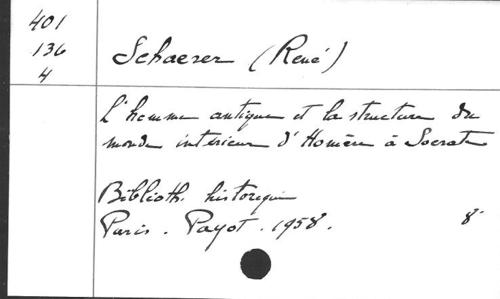 401
136
4
Schaerer (René)
L'homme antique et la structure du
monde intérieur d'Homère à Socrate
Biblioth. historique
Paris. Payot. 1958. 8°